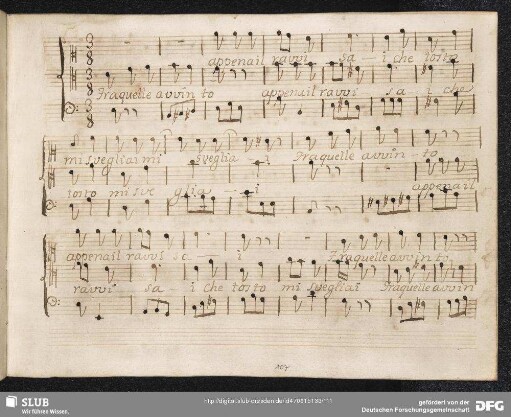 appena il ravvi sa - i che tosto
Fra quelle avvin to appena il ravvi sa i che
mi svegliai mi sveglia - i Fra quelle avvin - to
tosto mi sve glia - i appena il
appena il ravvi sa - i Fra quelle avvin to,
ravvi sa - i che tosto mi svegliai Fra quelle avvin
107
SLUB
Wir führen Wissen.
gefördert von der
Deutschen Forschungsgemeinschaft
DFG